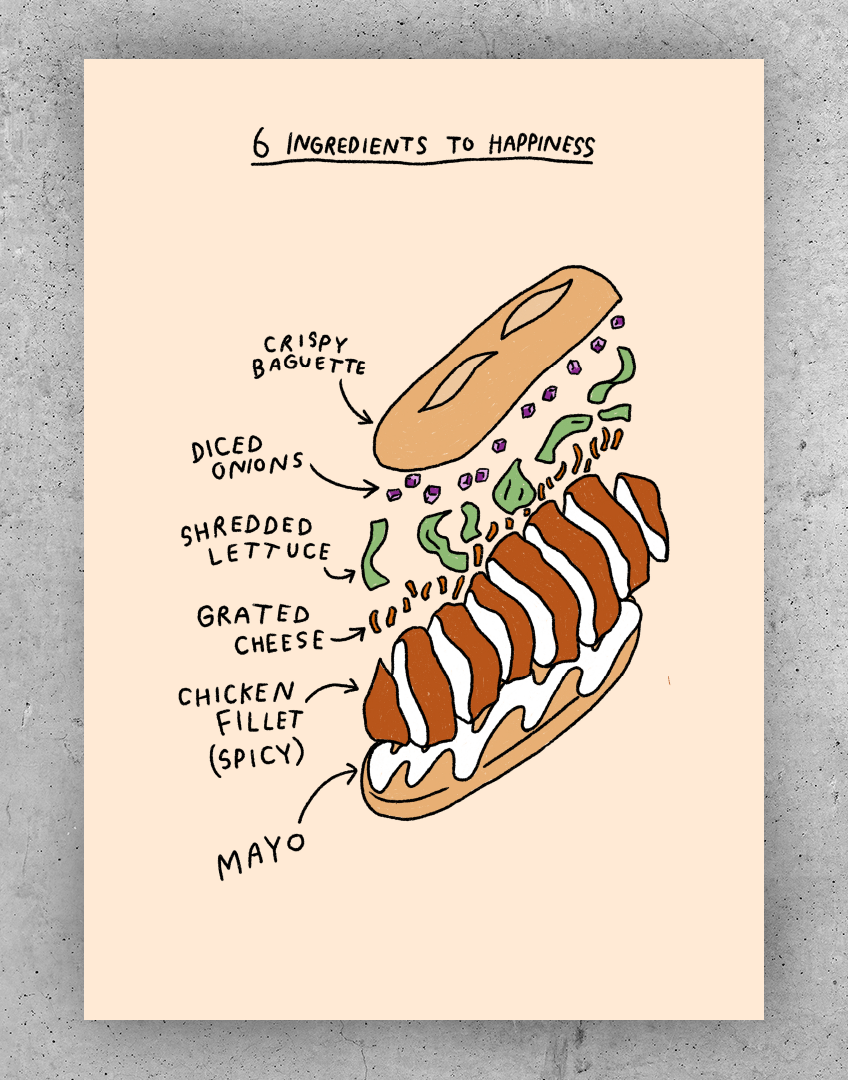 6 INGREDIENTS TO HAPPINESS
CRISPY
BAGUETTE
DICED
ONIONS
SHREDDED
LETTUCE
GRATED
CHEESE
CHICKEN
FILLET
(SPICY)
MAYO